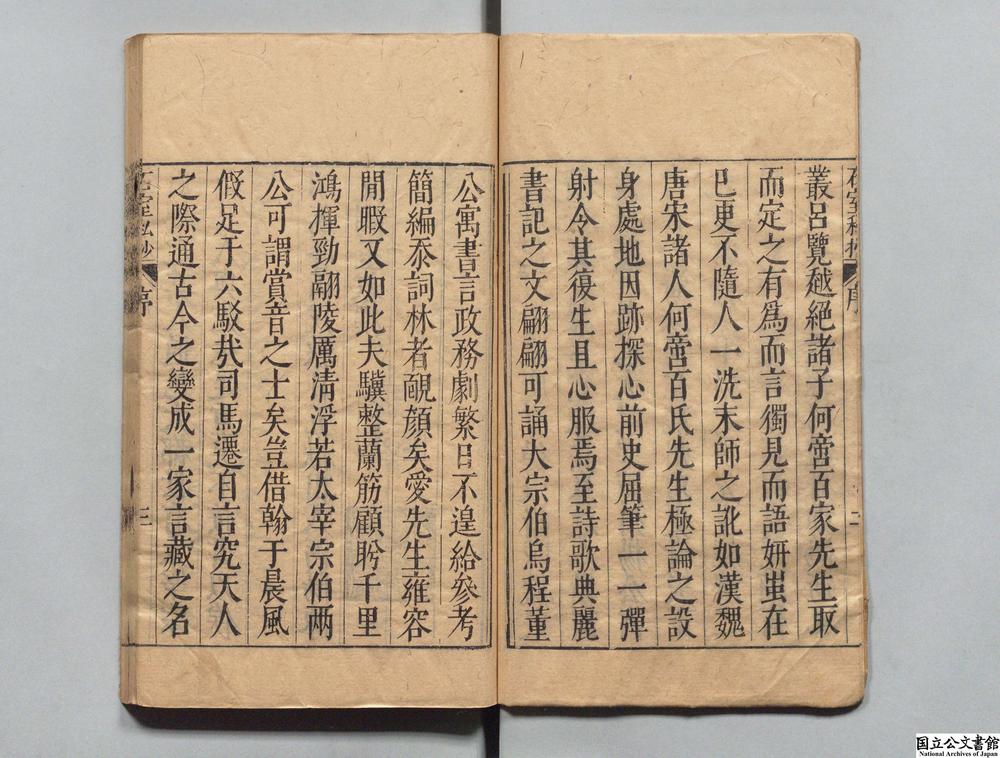 石室私抄 序 二
叢呂覽越絕諸子何啻百家先生取
而定之有爲而言獨見而語妍蚩在
巳更不隨人一洗末師之訛如漢魏
唐宋諸人何啻百氏先生極論之設
身處地因跡探心前史屈筆一一彈
射令其復生且心服焉至詩歌典麗
書記之文翩翩可誦大宗伯烏程董
公寓書言政務劇繁日不遑給參考
簡編忝詞林者靦顔矣愛先生雍容
閒暇又如此夫驥整蘭筋顧盻千里
鴻揮勁翮陵厲清浮若太宰宗伯兩
公可謂賞音之士矣豈借翰于晨風
假足于六駁㢤司馬遷自言究天人
之際通古今之變成一家言藏之名
石室私抄 序 三
国立公文書館
National Archives of Japan